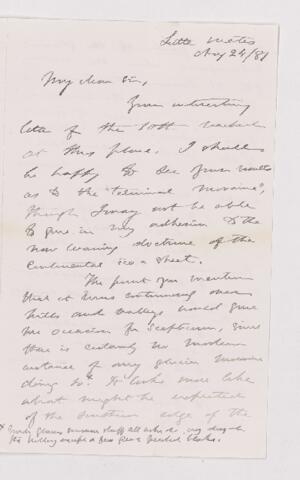 Little Metis
Aug 24/81
My dear Sir,
Your interesting
letter of the 10th reached
at this place. I shall
be happy to see your results
as to the "terminal moraine",
though I may not be able
to give in my adhesion to the
now reigning doctrine of the
Continental ice sheet.
The point you mention
that it runs continuously over
hills and valleys would give
me occasion for scepticism, since
there is certainly no modern
instance of any glacier moraine
doing so.* It looks more like
what might be expected
of the southern edge of the